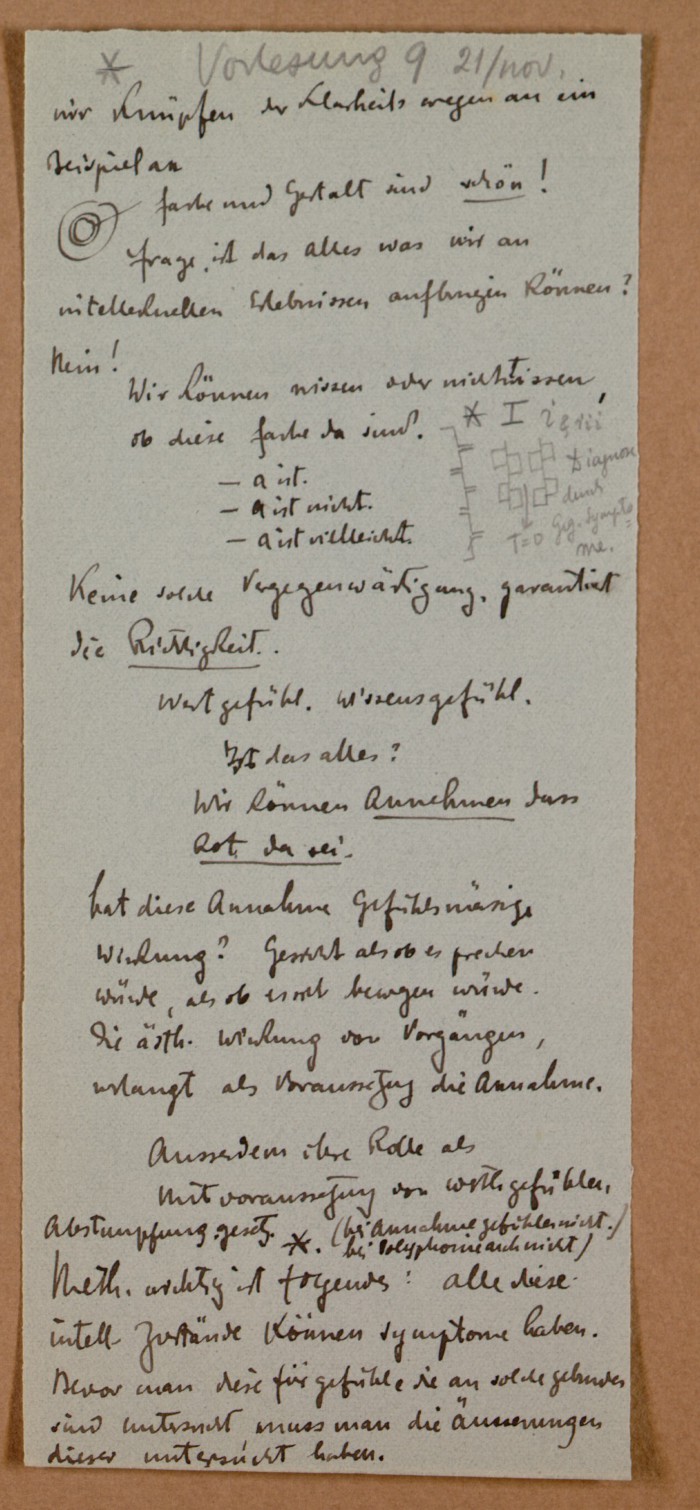 * Vorlesung 9 21/nov.
wir knüpfen der Klarheits wegen an ein
Beispiel an
farbe und Gestalt sind schön!
frage, ist das alles was wir an
intellektuellen Erlebnissen aufbringen können?
Nein!
Wir können wissen oder nicht wissen,
ob diese farbe da sind.
* I
— a ist.
Diagnose
— a ist nicht.
durch
— a ist vielleicht.
Geg. Sympto-
me.
T=0
Keine solche Vergegenwärtigung, garantiert
die Richtigkeit.
Wertgefühl. Wissensgefühl.
Ist das alles?
Wir können Annehmen dass
Rot da sei.
hat diese Annahme Gefühlsmäsige
Wirkung? Gesicht als ob es sprechen
würde, als ob es sich bewegen würde.
Die ästh. Wirkung von Vorgängen,
verlangt als Voraussetzung die Annahme.
Ausserdem ihre Rolle als
Mitvoraussetzung von werthgefühlen,
Abstumpfungsgesetz *. (bei Annahmegefühlen nicht.)
bei Polyphonie auch nicht)
Meth. wichtig ist folgendes: alle diese
intell. Zustände können symptome haben.
Bevor man diese für gefühle die an solche gebunden
sind untersucht muss man die äusserungen
dieser untersucht haben.